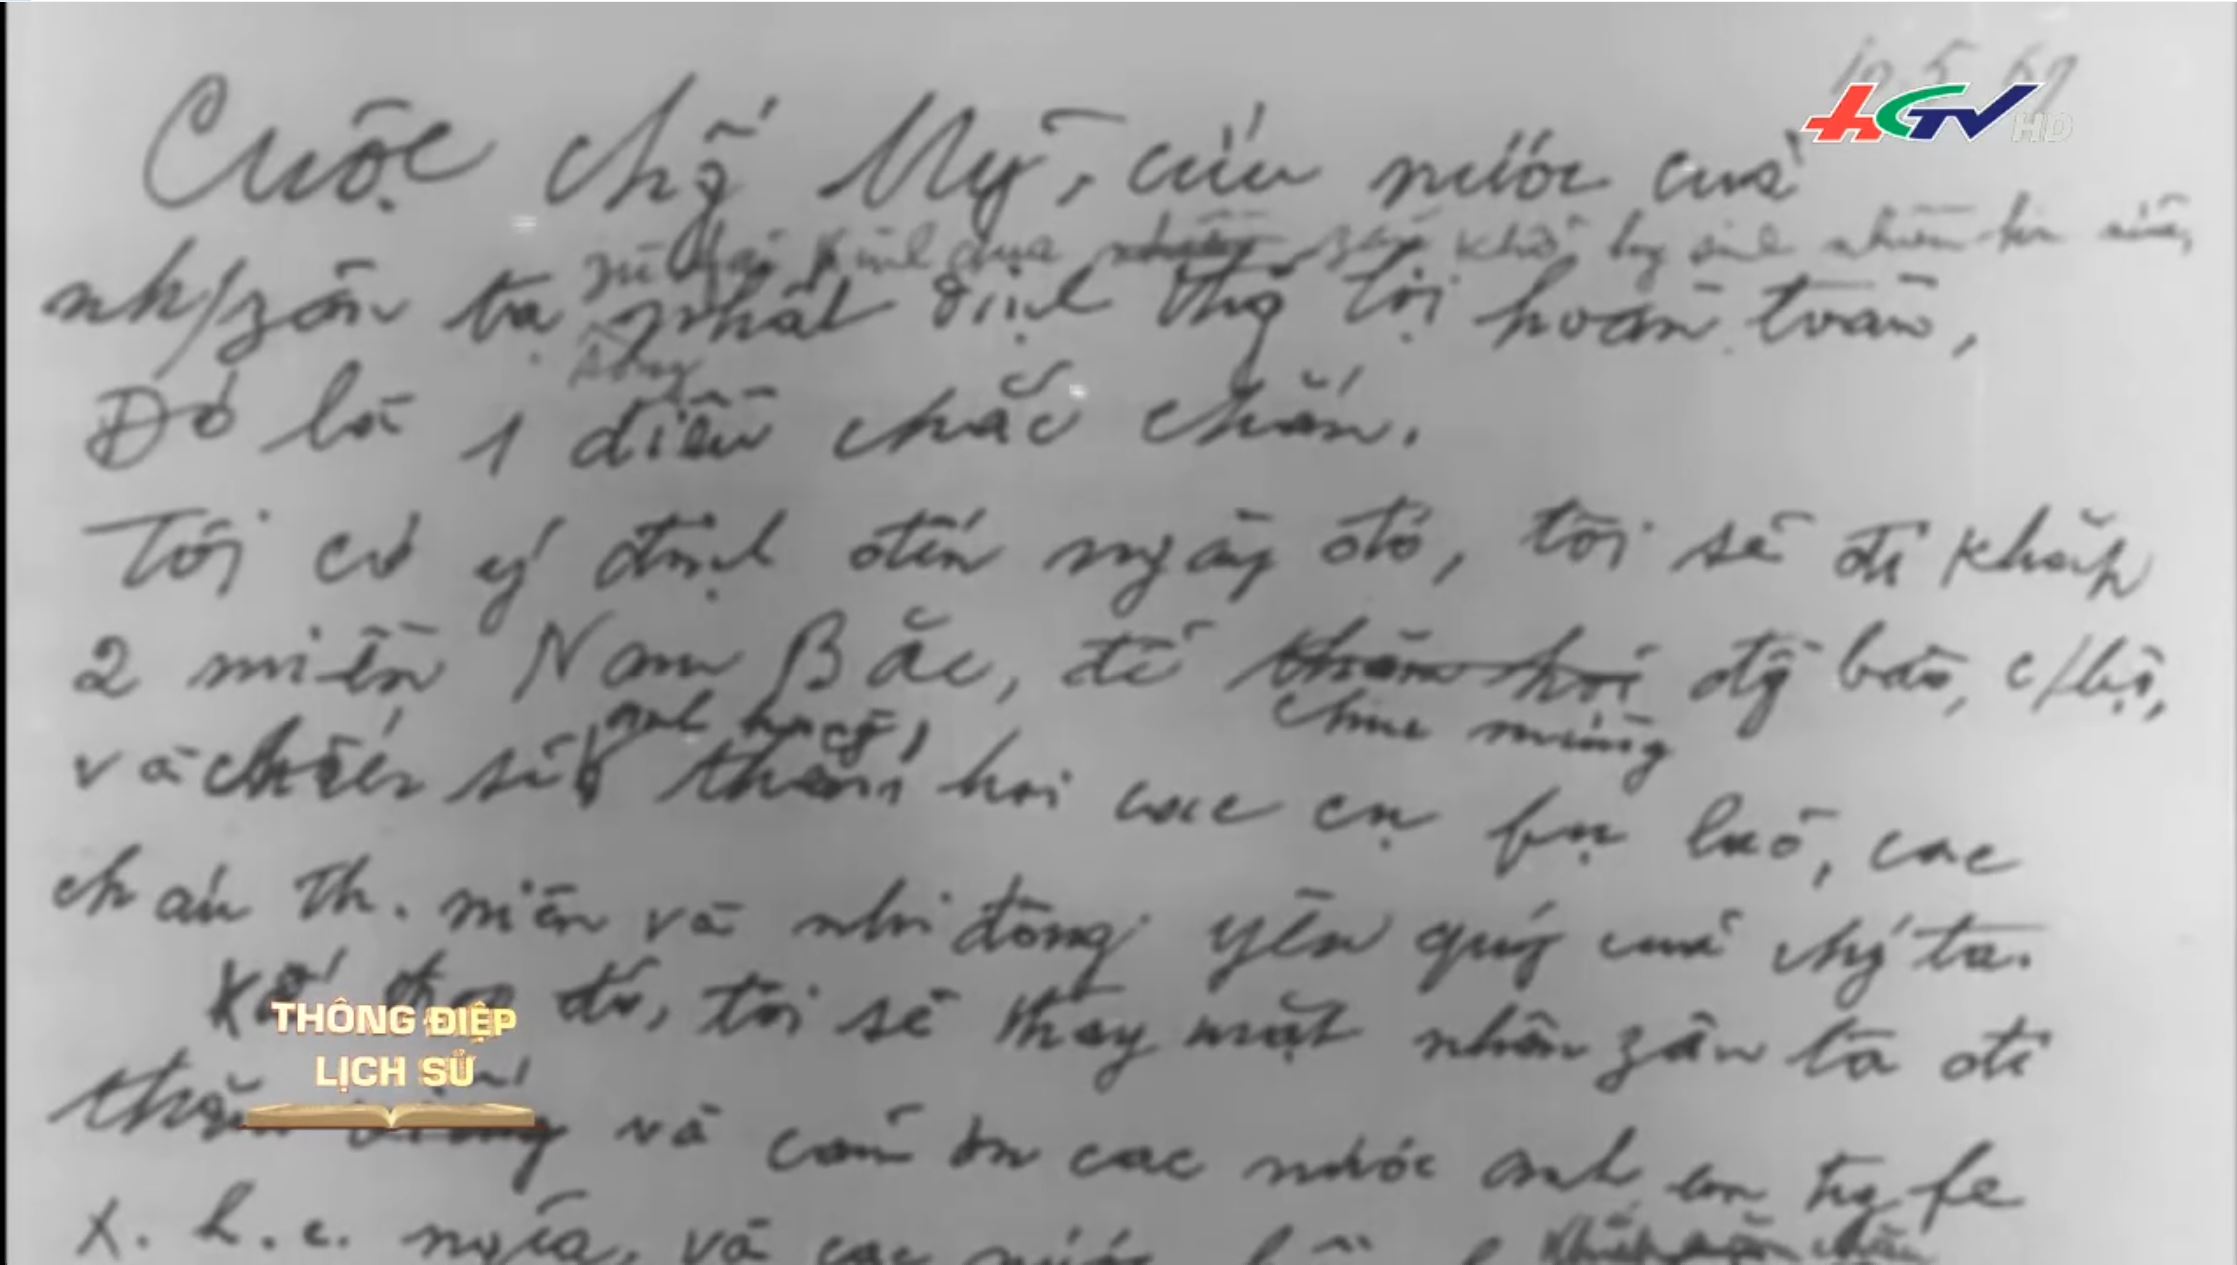 10.5.69
HGTV HD
Cuộc chố Mỹ, cứu nước của
zù fải kinh qua nhiều zan khổ hy sinh nhiều hơn nữa,
nh/zân ta nhất định thg lợi hoàn toàn,
Đó là 1 điều chắc chắn.
Tôi có ý định đến ngày đó, tôi sẽ đi khắp
2 miền Nam Bắc, để thăm hỏi đg bào, c/bộ,
chúc mừng
anh hùng,
và chiến sĩ thăm hỏi các cụ fụ lão, các
cháu th. niên và nhi đồng yêu quý của chg ta.
đó, tôi sẽ thay mặt nhân zân ta đi
THÔNG ĐIỆP
LỊCH SỬ
thăm và cảm ơn các nước anh em trg fe
x. h. c. nghĩa, và các nước